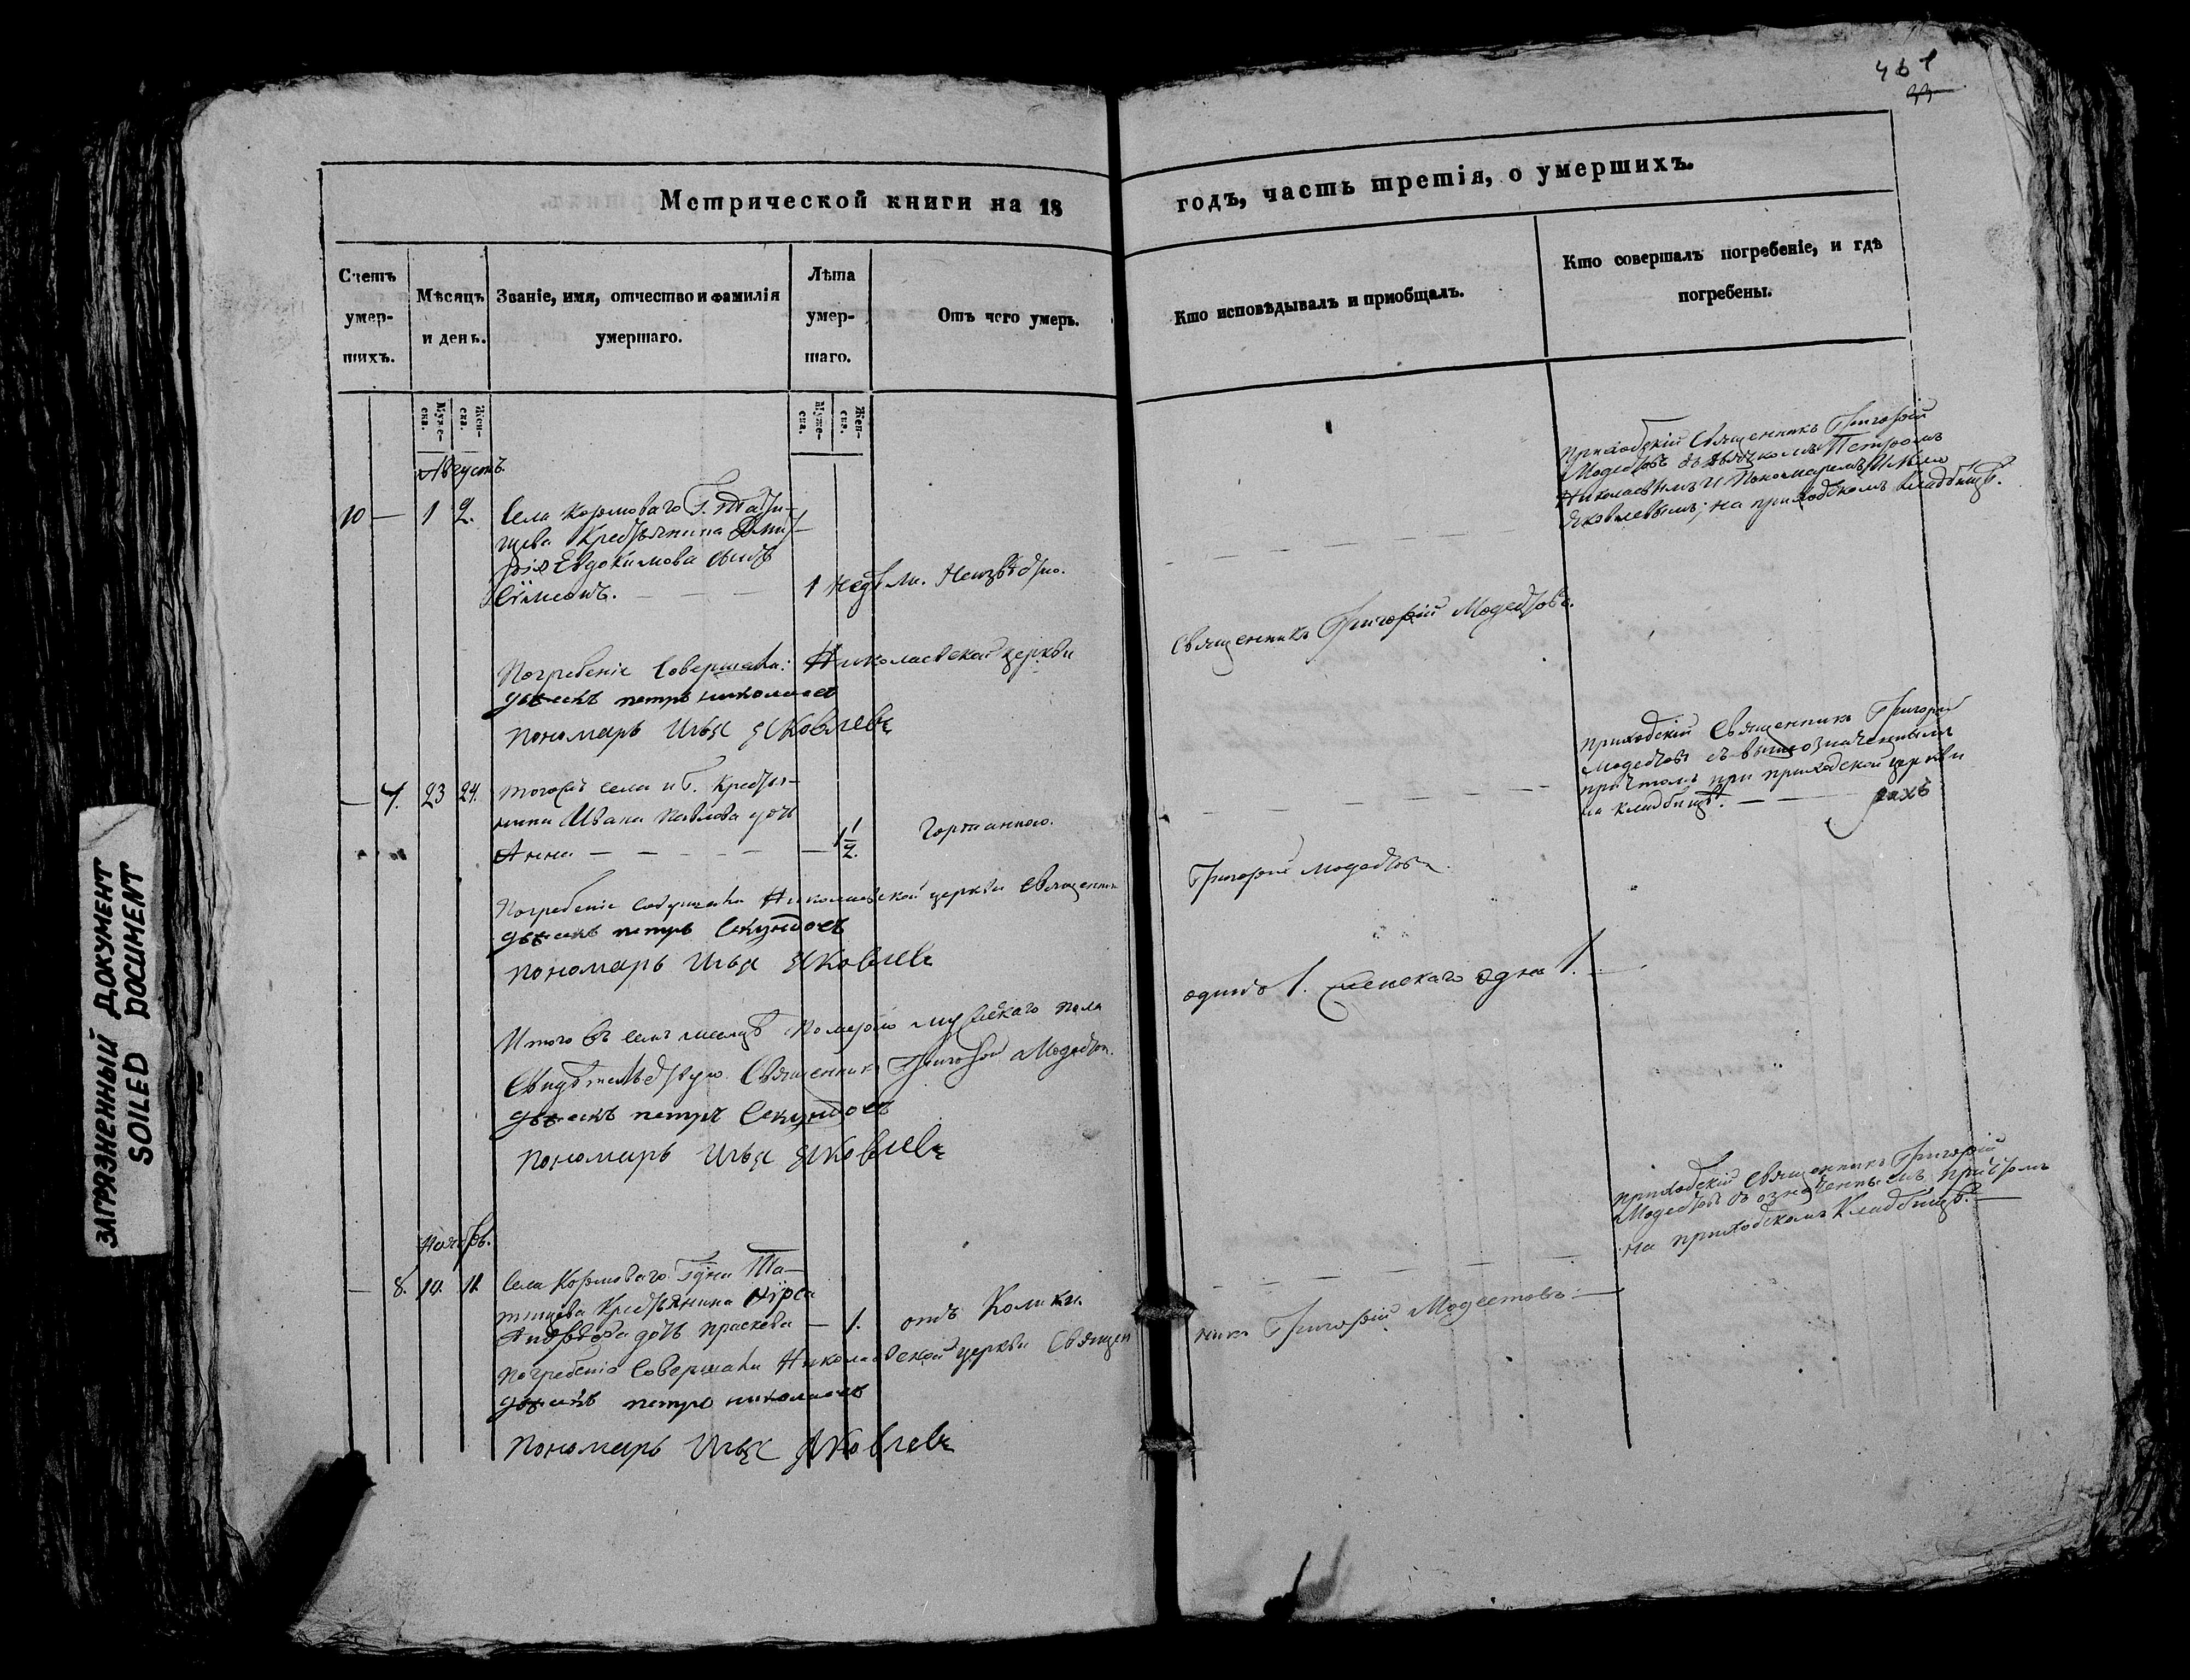 461
33
Метрической книги на 18 годъ, часть третія, о умершихъ.
Счетъ умер-шихъ.
Мѣсяцъ и день.
Званіе, имя, отчество и фамилія умершаго.
Лѣта умер-шаго.
Отъ чего умеръ.
Кто исповѣдывалъ и пріобщалъ.
Кто совершалъ погребеніе, и гдѣ погребены.
Муже-ска.
Жен-ска.
Муже-ска.
Жен-ска.
Августъ
10 — 1 2. Села Кормоваго Г. Тати-
щева Крестьянина Дмит-
рія Евдокимова сынъ
Сѵмеонъ. — — — 1 недѣли. Неизвѣстно.
Приходскій Священникъ Григорій
Модестовъ съ дьячкомъ Петромъ
Николаевымъ и Пономаремъ Ильею
Яковлевымъ; на приходскомъ кладбищѣ.
Погребеніе совершали: Николаевской церкви Священникъ Григорій Модестовъ.
дьячекъ петръ николаевъ
пономарь Илья Яковлевъ
— 7. 23 24. тогожъ села и Г. Крестья-
нина Ивана Павлова дочь
Анна — — — — — 1 1/2. Гортанною.
приходскій Священникъ Григорій
Модестовъ съ вышеозначеннымъ
причтомъ при приходской церкви
на кладбищѣ. —
Погребеніе совершали Николаевской церкви Священникъ Григорій Модестовъ.
дьячекъ петръ Секундовъ
пономарь Илья Яковлевъ
Итого въ семъ месяцѣ померло мужескаго пола одинъ 1. женскаго одна 1. —
Свидѣтельствую Священникъ Григорій Модестовъ.
дьячекъ петръ Секундовъ
пономарь Илья Яковлевъ
Ноябрь.
— 8. 10. 11. Села Кормоваго Гдна Та-
тищева Крестьянина Кѵра
Андрѣева дочь Праскева — 1. отъ Колики.
приходскій Священникъ Григорій
Модестовъ съ означеннымъ причтомъ
на приходскомъ Кладбищѣ. —
Погребеніе Совершали Николаевской церкви Священникъ Григорій Модестовъ. —
дьячекъ петръ николаевъ
пономарь Илья Яковлевъ
ЗАГРЯЗНЕННЫЙ ДОКУМЕНТ
SOILED DOCUMENT